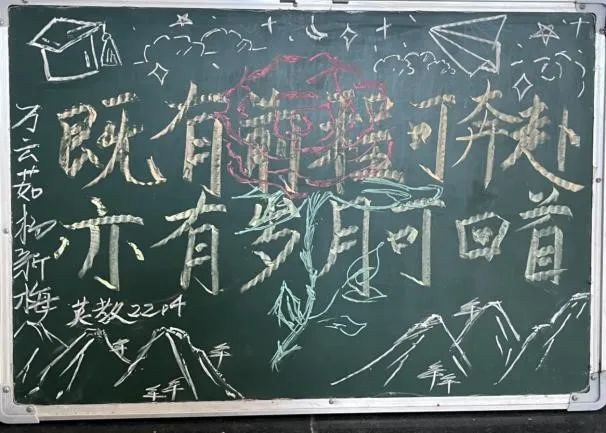 既有前程可奔赴
亦有岁月可回首
万云茹 杨新梅
英教2204